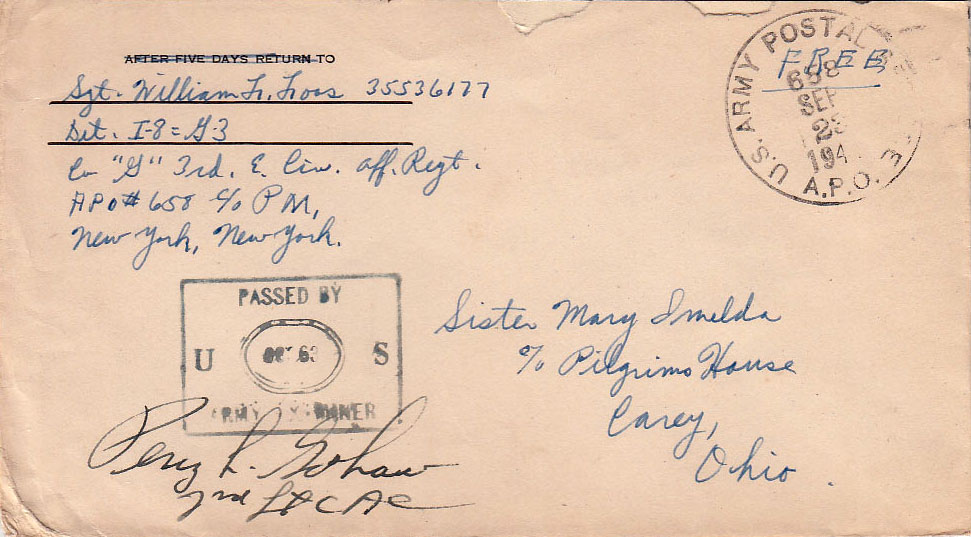 AFTER FIVE DAYS RETURN TO
Sgt. William Fr. Froos 35536177
Det. I-8 = G-3
Co "G" 3rd. E. Civ. Aff. Regt.
APO# 658 c/o P M,
New York, New York.
U.S. ARMY POSTAL
A.P.O.
658
SEP
23
194
FREE
PASSED BY
U S
ARMY EXAMINER
2nd Lt CAC
Sister Mary Imelda
c/o Pilgrims House
Carey,
Ohio.